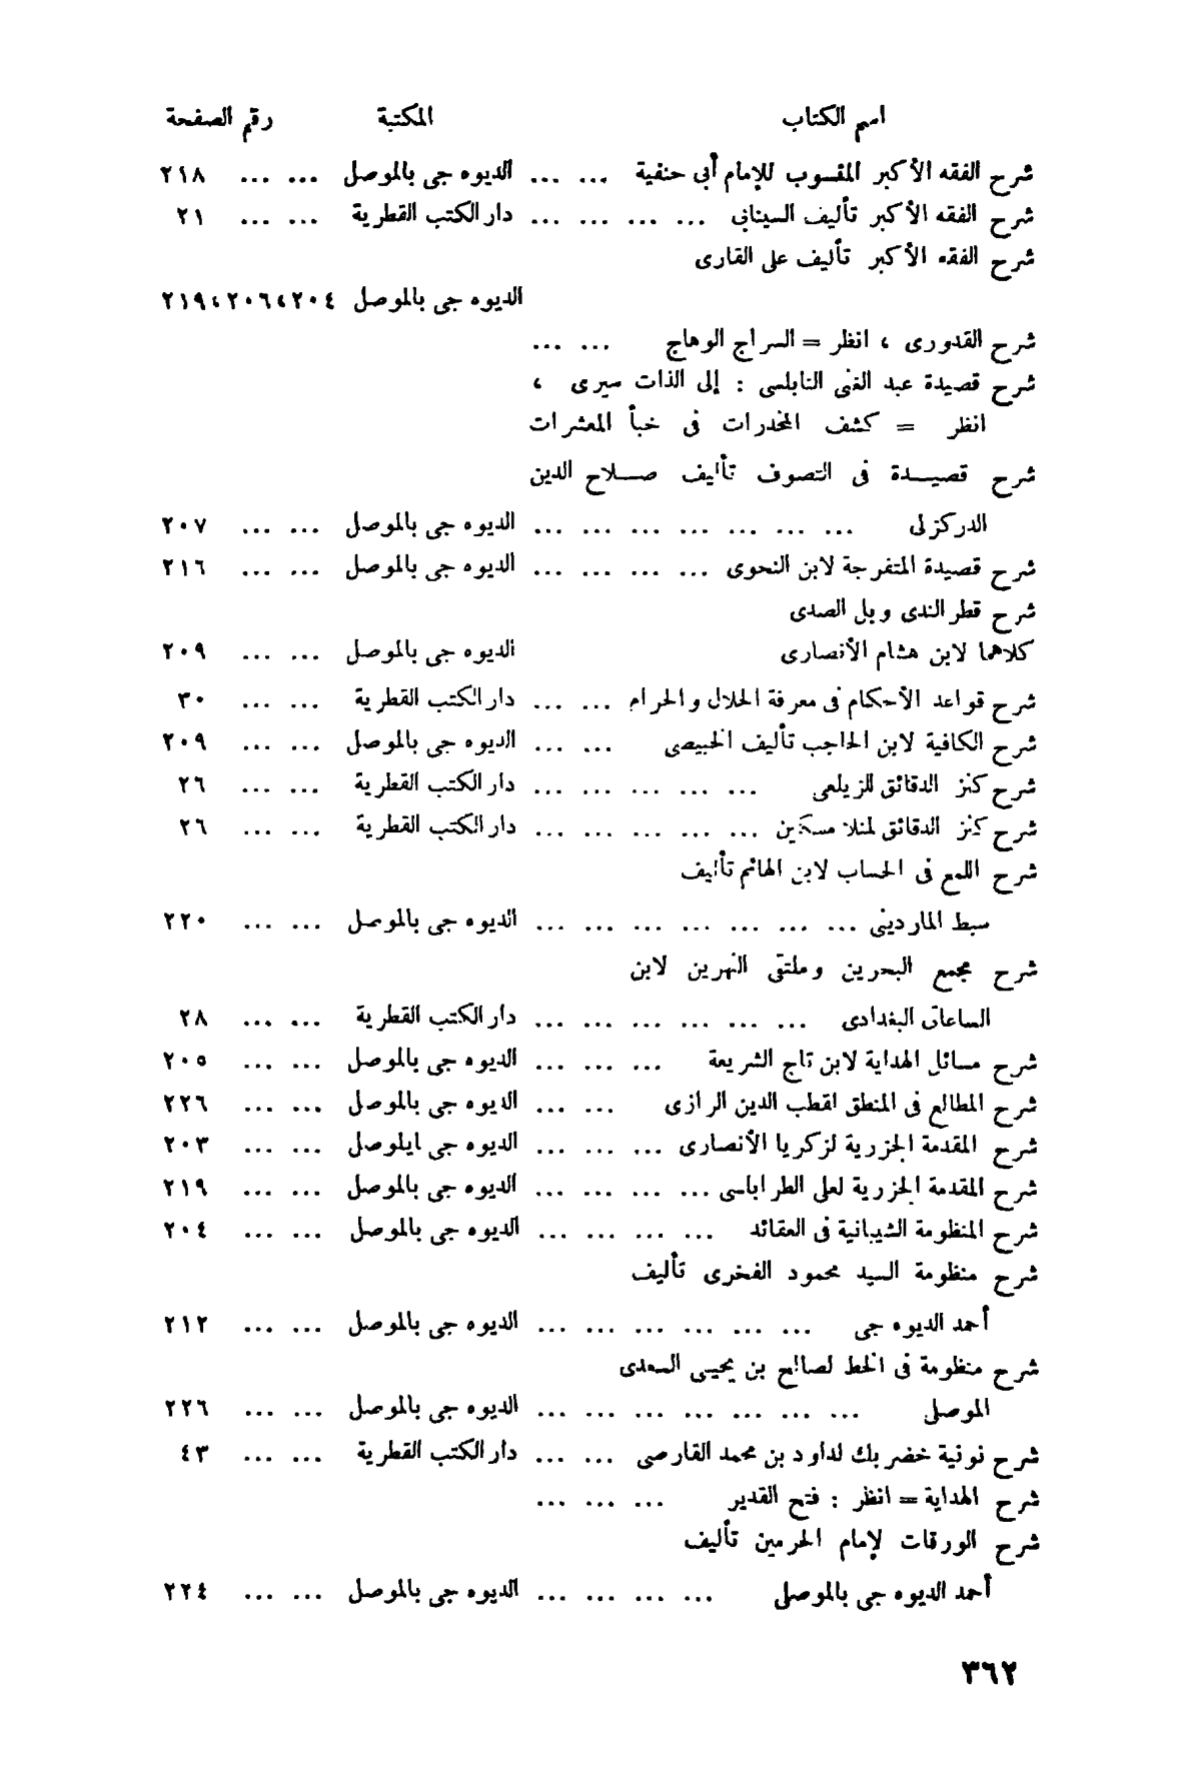 اسم الكتاب المكتبة رقم الصفحة
شرح الفقه الأكبر المنسوب للإمام أبى حنفية ... ... الديوه جى بالموصل ... ... ٢١٨
شرح الفقه الأكبر تأليف السينابى ... ... ... ... دار الكتب القطرية ... ... ٢١
شرح الفقه الأكبر تأليف على القارى
الديوه جى بالموصل ٢٠٤،٢٠٦،٢١٩
شرح القدورى ، انظر = السراج الوهاج ... ...
شرح قصيدة عبد الغنى النابلسى : إلى الذات سيرى ،
انظر = كشف المخدرات فى خبأ المعشرات
شرح قصيــدة فى التصوف تأليف صــلاح الدين
الدركزلى ... ... ... ... ... ... ... الديوه جى بالموصل ... ... ٢٠٧
شرح قصيدة المتفرجة لابن النحوى ... ... ... ... الديوه جى بالموصل ... ... ٢١٦
شرح قطر الندى وبل الصدى
كلاهما لابن هشام الأنصارى الديوه جى بالموصل ... ... ٢٠٩
شرح قواعد الأحكام فى معرفة الحلال والحرام ... ... دار الكتب القطرية ... ... ٣٠
شرح الكافية لابن الحاجب تأليف الخبيصى ... ... الديوه جى بالموصل ... ... ٢٠٩
شرح كنز الدقائق للزيلعى ... ... ... ... ... دار الكتب القطرية ... ... ٢٦
شرح كنز الدقائق لمنلا مسكين ... ... ... ... ... دار الكتب القطرية ... ... ٢٦
شرح اللمع فى الحساب لابن الهائم تأليف
سبط الماردينى ... ... ... ... ... ... ... الديوه جى بالموصل ... ... ٢٢٠
شرح مجمع البحرين وملتقى النهرين لابن
الساعاتى البغدادى ... ... ... ... ... ... دار الكتب القطرية ... ... ٢٨
شرح مسائل الهداية لابن تاج الشريعة ... ... ... الديوه جى بالموصل ... ... ٢٠٥
شرح المطالع فى المنطق لقطب الدين الرازى ... ... الديوه جى بالموصل ... ... ٢٢٦
شرح المقدمة الجزرية لزكريا الأنصارى ... ... ... الديوه جى بايلوصل ... ... ٢٠٣
شرح المقدمة الجزرية لعلى الطرابلسى ... ... ... ... الديوه جى بالموصل ... ... ٢١٩
شرح المنظومة الشيبانية فى العقائد ... ... ... ... الديوه جى بالموصل ... ... ٢٠٤
شرح منظومة السيد محمود الفخرى تأليف
أحمد الديوه جى ... ... ... ... ... ... الديوه جى بالموصل ... ... ٢١٢
شرح منظومة فى الخط لصالح بن يحيى السعدى
الموصلى ... ... ... ... ... ... ... الديوه جى بالموصل ... ... ٢٢٦
شرح نونية خضر بك لداود بن محمد القارصى ... ... دار الكتب القطرية ... ... ٤٣
شرح الهداية = انظر : فتح القدير ... ... ...
شرح الورقات لإمام الحرمين تأليف
أحمد الديوه جى بالموصلى ... ... ... ... الديوه جى بالموصل ... ... ٢٢٤
٣٦٢